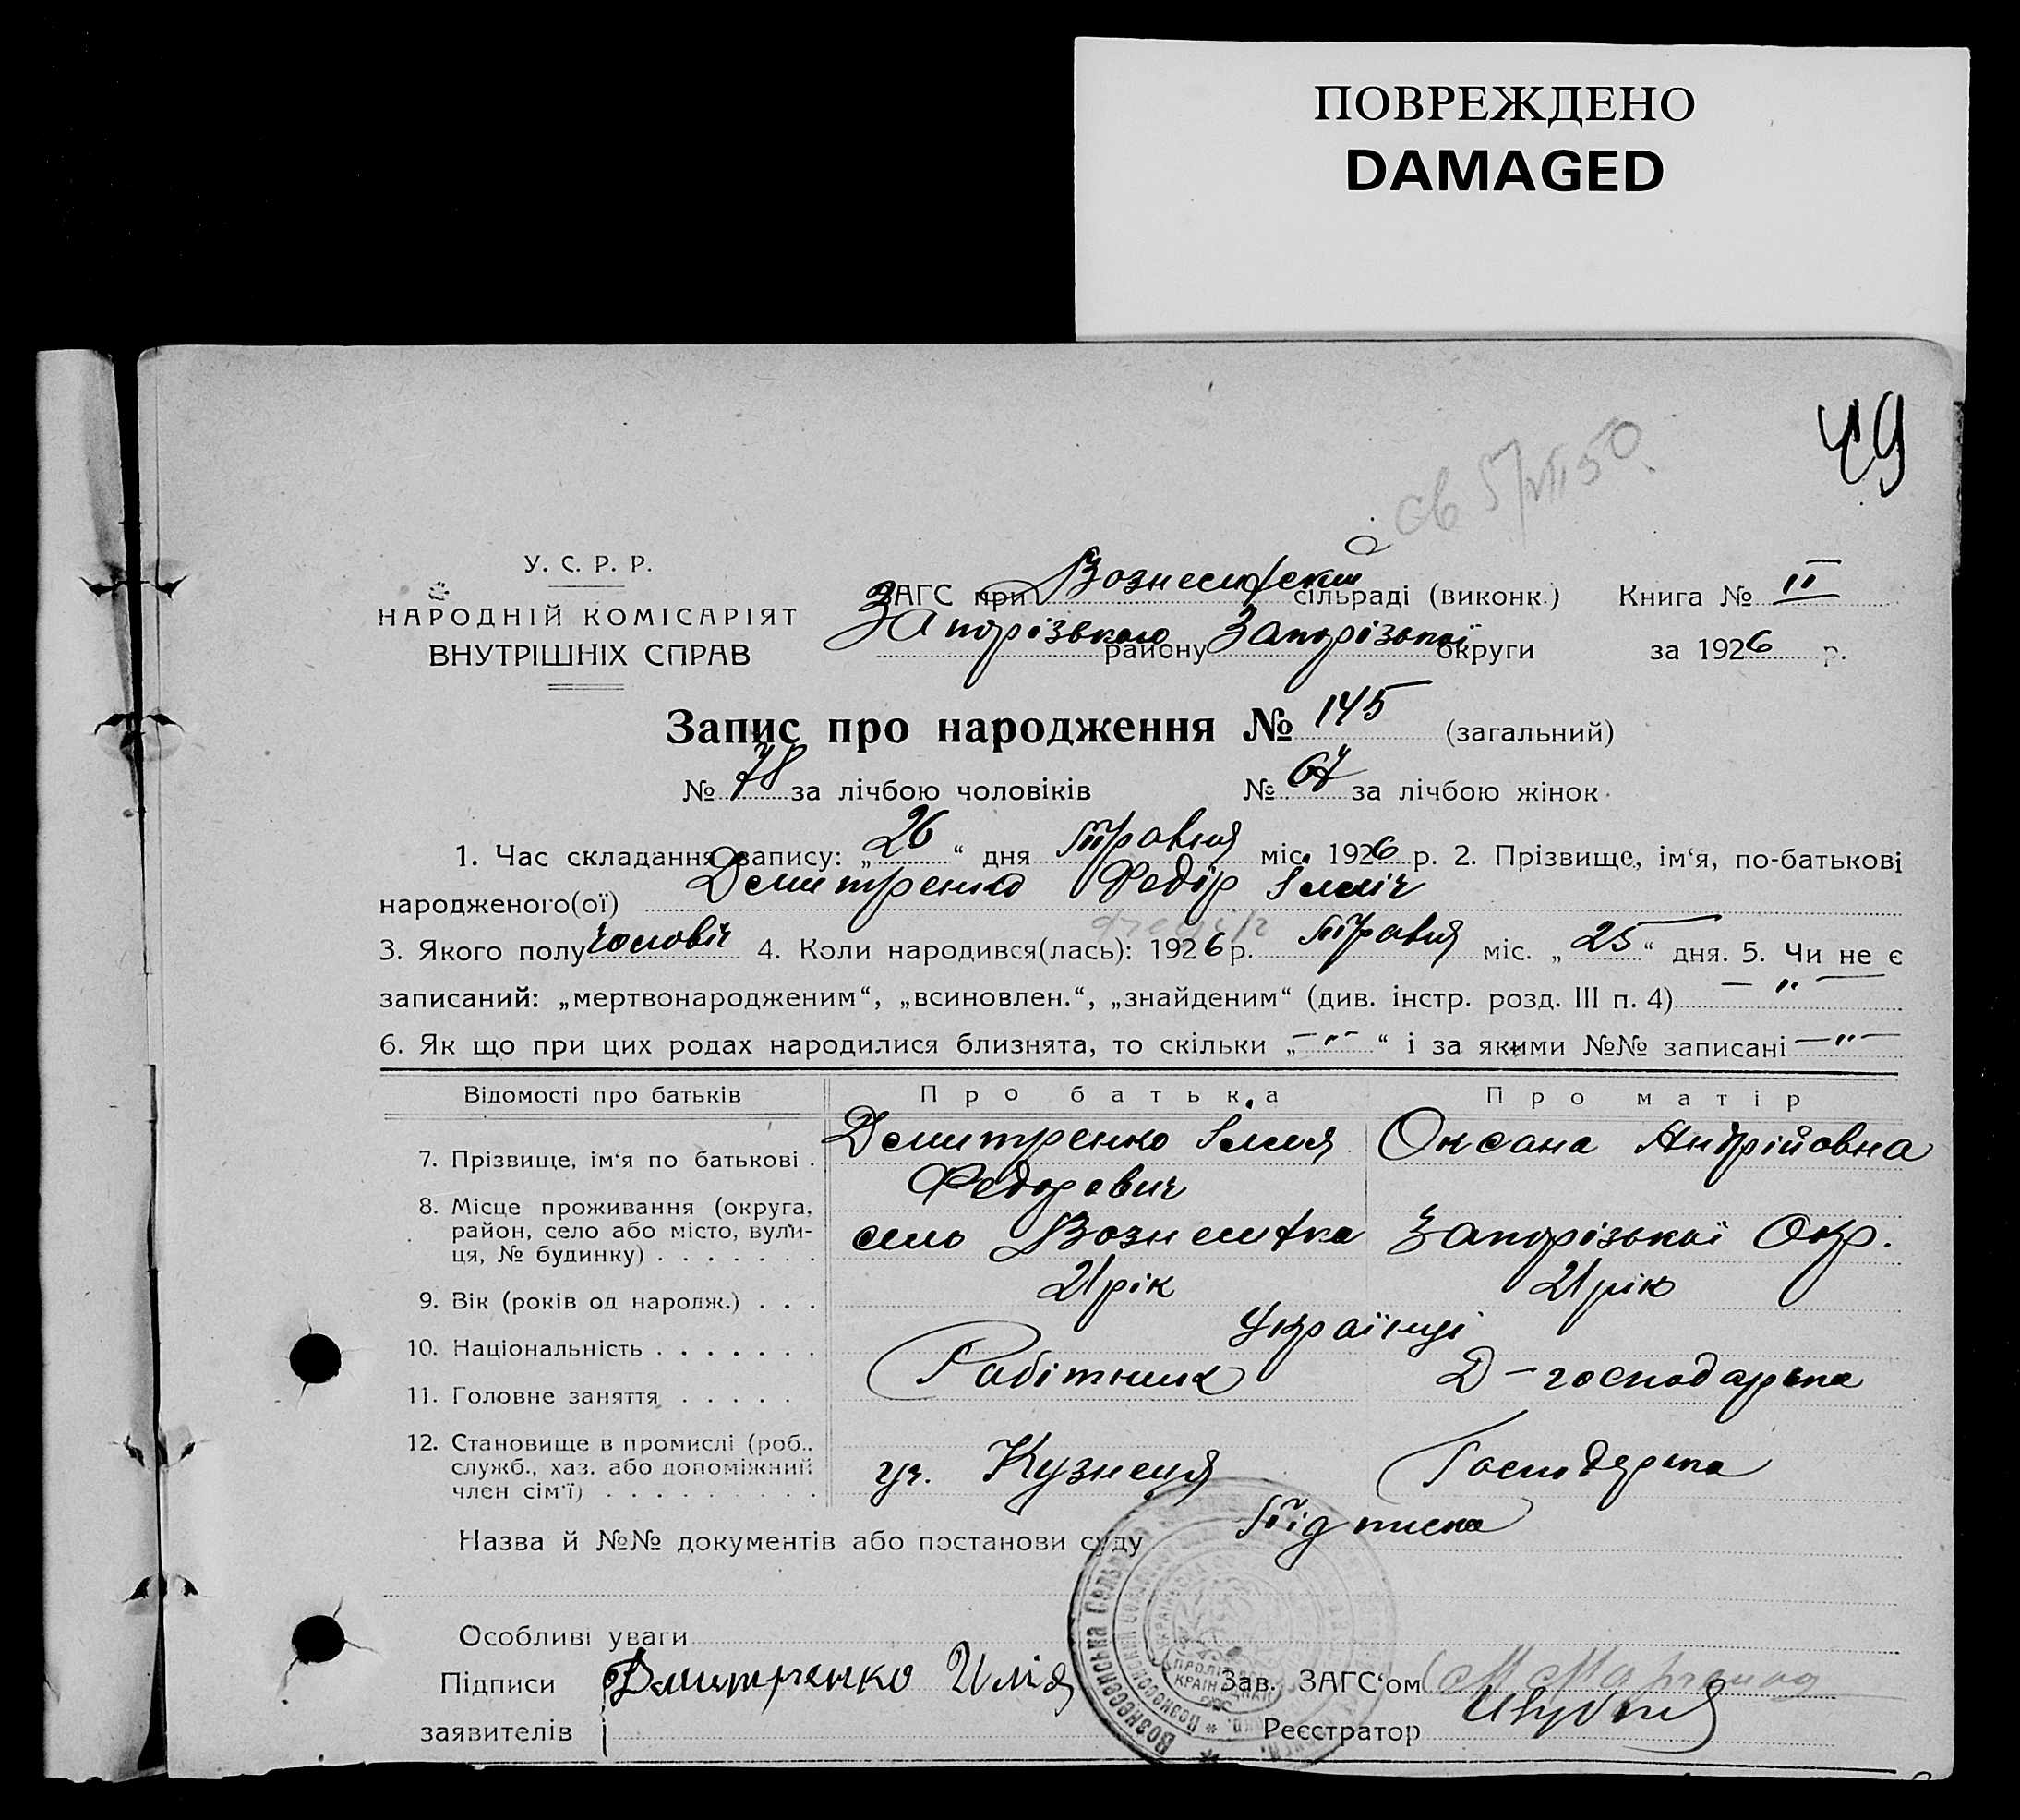 ПОВРЕЖДЕНО
DAMAGED
49
св 5/VII 50
У. С. Р. Р.
НАРОДНІЙ КОМІСАРІЯТ
ВНУТРІШНІХ СПРАВ
ЗАГС при Вознесенській сільраді (виконк.) Книга № II
Запорізького району Запорізької округи за 1926 р.
Запис про народження № 145 (загальний)
№ 78 за лічбою чоловіків № 67 за лічбою жінок
1. Час складання запису: „26“ дня Травня міс. 1926 р. 2. Прізвище, ім‘я, по-батькові
народженого(ої) Демитренко Федір Ілліч
3. Якого полу чоловіч 4. Коли народився(лась): 1926 р. Травня міс. „25“ дня. 5. Чи не є
записаний: „мертвонародженим“, „всиновлен.“, „знайденим“ (див. інстр. розд. III п. 4) — „ —
6. Як що при цих родах народилися близнята, то скільки „— „ —“ і за якими №№ записані — „ —
Відомості про батьків Про батька Про матір
7. Прізвище, ім‘я по батькові . Демитренко Ілля Федорович Оксана Андрійовна
8. Місце проживання (округа,
район, село або місто, вули-
ця, № будинку) . . . . . . . село Вознесенка Запорізької Окр.
9. Вік (років од народж.) . . . 21 рік 21 рік
10. Національність . . . . . . . Українці
11. Головне заняття . . . . . Робітник Д-господарка
12. Становище в промислі (роб..
служб., хаз. або допоміжний
член сім‘ї) . . . . . . . . . уч. Кузнеця Господарка
Назва й №№ документів або постанови суду Підписка
Особливі уваги
Підписи Дмитренко Илія Зав. ЗАГС‘ом
заявителів Реєстратор
Вознесенська